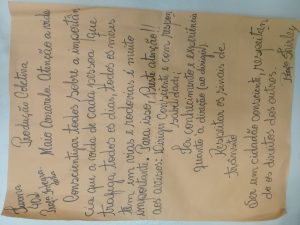 Turma
Produção Coletiva
Maio Amarelo Atenção a vida
Conscientizar todos, sobre a importân
cia que a vida de cada pessoa que
trafega, todos os dias, todos os meses
tem em vias e rodovias é muito
importante. Para isso, Preste atenção!!
aos avisos: Dirija Consciente e com respon
sabilidade;
Ter conhecimento e experiência
quanto a direção (ao dirigir).
Respeitar os sinais de
trânsito
Ser um cidadão consciente, respeitan
do os direitos dos outros.